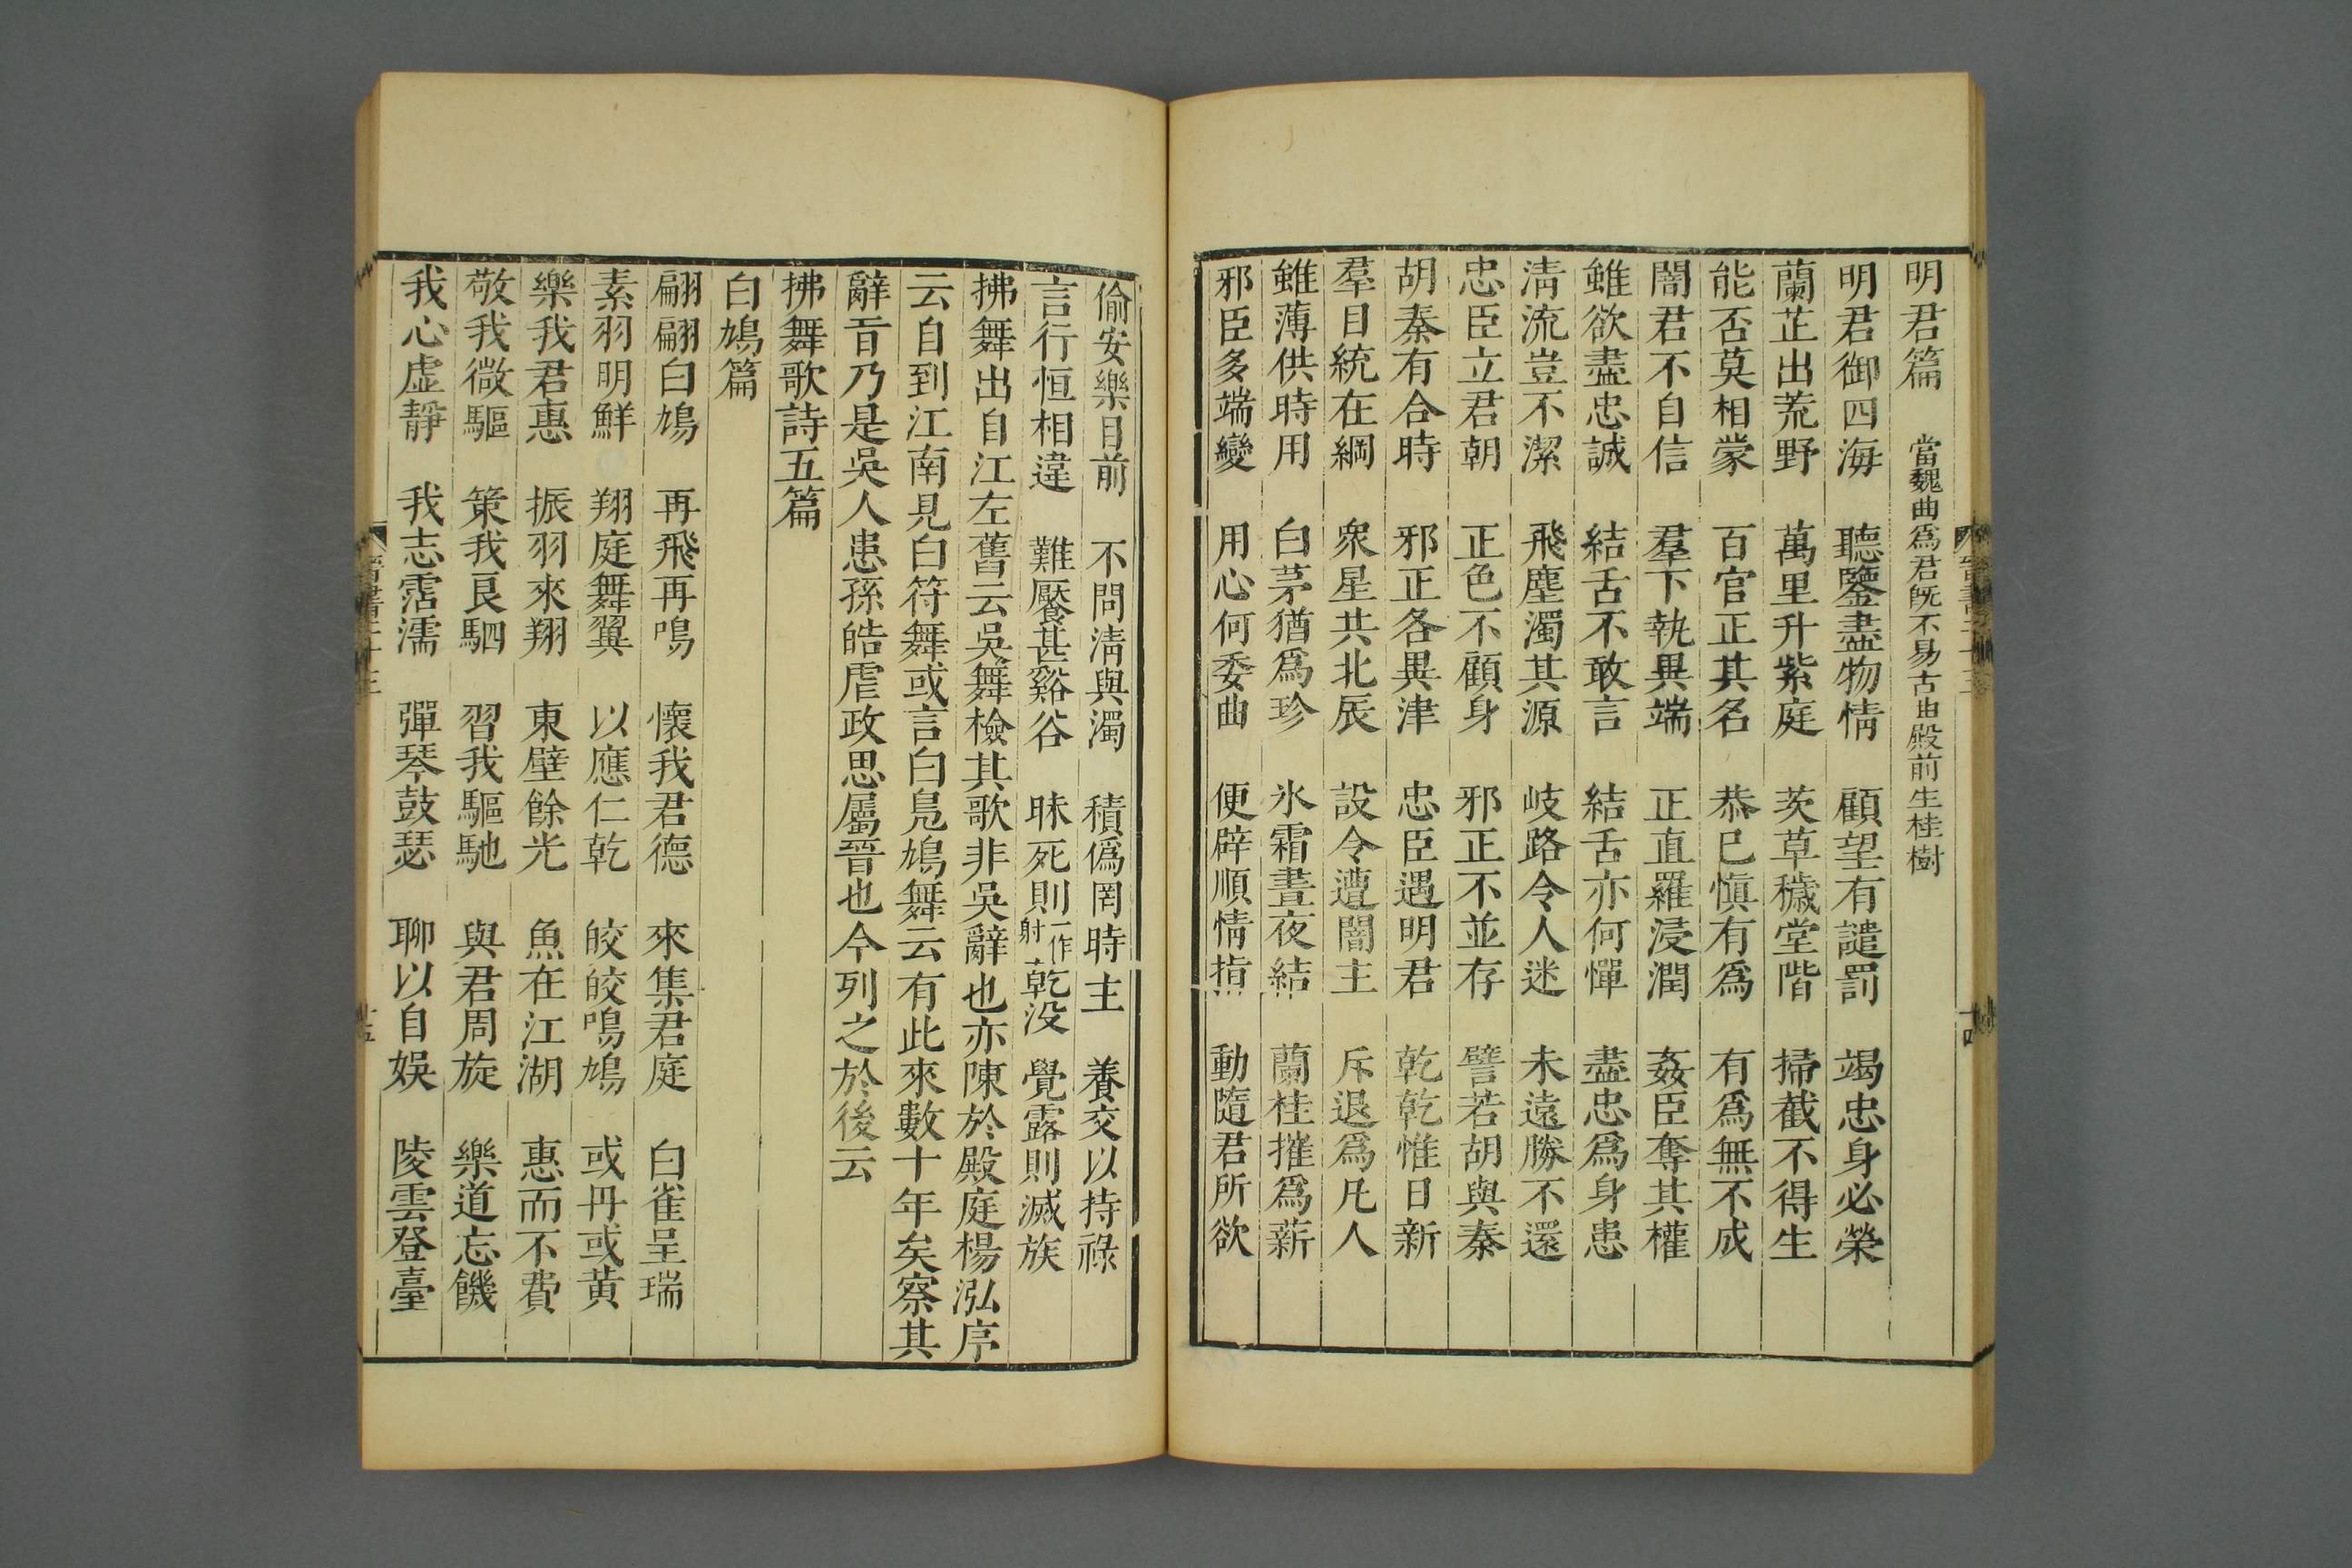 明君篇 當魏曲爲君旣不易古曲殿前生桂樹
明君御四海 聽鑒盡物情 顧望有譴罰 竭忠身必榮
蘭芷出荒野 萬里升紫庭 茨草穢堂階 掃截不得生
能否莫相蒙 百官正其名 恭巳愼有爲 有爲無不成
闇君不自信 羣下執異端 正直羅浸潤 姦臣奪其權
雖欲盡忠誠 結舌不敢言 結舌亦何憚 盡忠爲身患
淸流豈不潔 飛塵濁其源 岐路令人迷 未遠勝不還
忠臣立君朝 正色不顧身 邪正不並存 譬若胡與秦
胡秦有合時 邪正各異津 忠臣遇明君 乾乾惟日新
羣目統在綱 衆星共北辰 設令遭闇主 斥退爲凡人
雖薄供時用 白茅猶爲珍 氷霜晝夜結 蘭桂摧爲薪
邪臣多端變 用心何委曲 便辟順情指 動隨君所欲
偷安樂目前 不問淸與濁 積僞罔時主 養交以持祿
言行恒相違 難饜甚谿谷 昧死則一作射乾没 覺露則滅族
拂舞出自江左舊云吳舞檢其歌非吳辭也亦陳於殿庭楊泓序
云自到江南見白符舞或言白鳧鳩舞云有此來數十年矣察其
辭㫖乃是吳人患孫皓虐政思屬晉也今列之於後云
拂舞歌詩五篇
白鳩篇
翩翩白鳩 再飛再鳴 懷我君德 來集君庭 白雀呈瑞
素羽明鮮 翔庭舞翼 以應仁乾 皎皎鳴鳩 或丹或黄
樂我君惠 振羽來翔 東壁餘光 魚在江湖 惠而不費
敬我微驅 策我良駟 習我驅馳 與君周旋 樂道忘饑
我心虛靜 我志霑濡 彈琴鼓瑟 聊以自娛 陵雲登臺